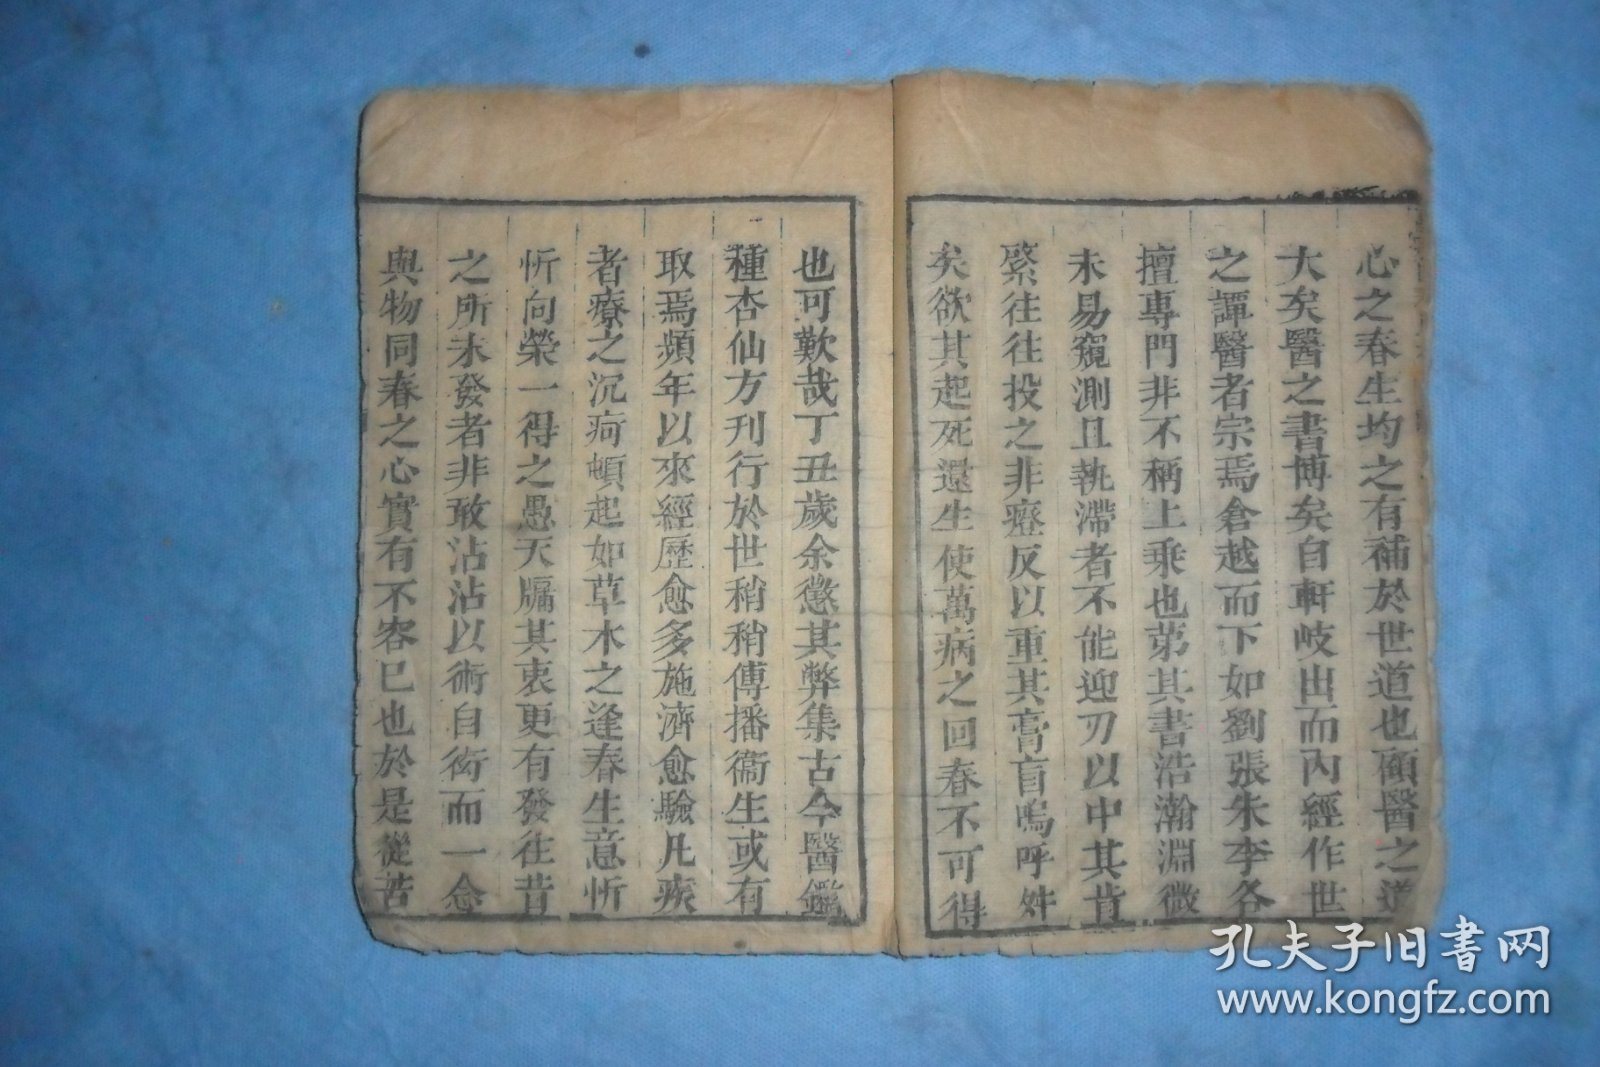 心之春生均之有補於世道也顧醫之道
大矣醫之書博矣自軒岐出而內經作世
之譚醫者宗焉倉越而下如劉張朱李各
擅專門非不稱上乘也第其書浩瀚淵微
未易窺測且執滯者不能迎刃以中其肯
綮往往投之非瘥反以重其膏肓嗚呼姅
矣欲其起死還生使萬病之回春不可得
也可歎哉丁丑歲余懲其弊集古今醫鑑
種杏仙方刊行於世稍稍傳播衞生或有
取焉頻年以來經歷愈多施濟愈驗凡疾
者療之沉疴頓起如草木之逢春生意忻
忻向榮一得之愚天牖其衷更有發往昔
之所未發者非敢沾沾以術自衒而一念
與物同春之心實有不容已也於是從苦
孔夫子旧書网
www.kongfz.com